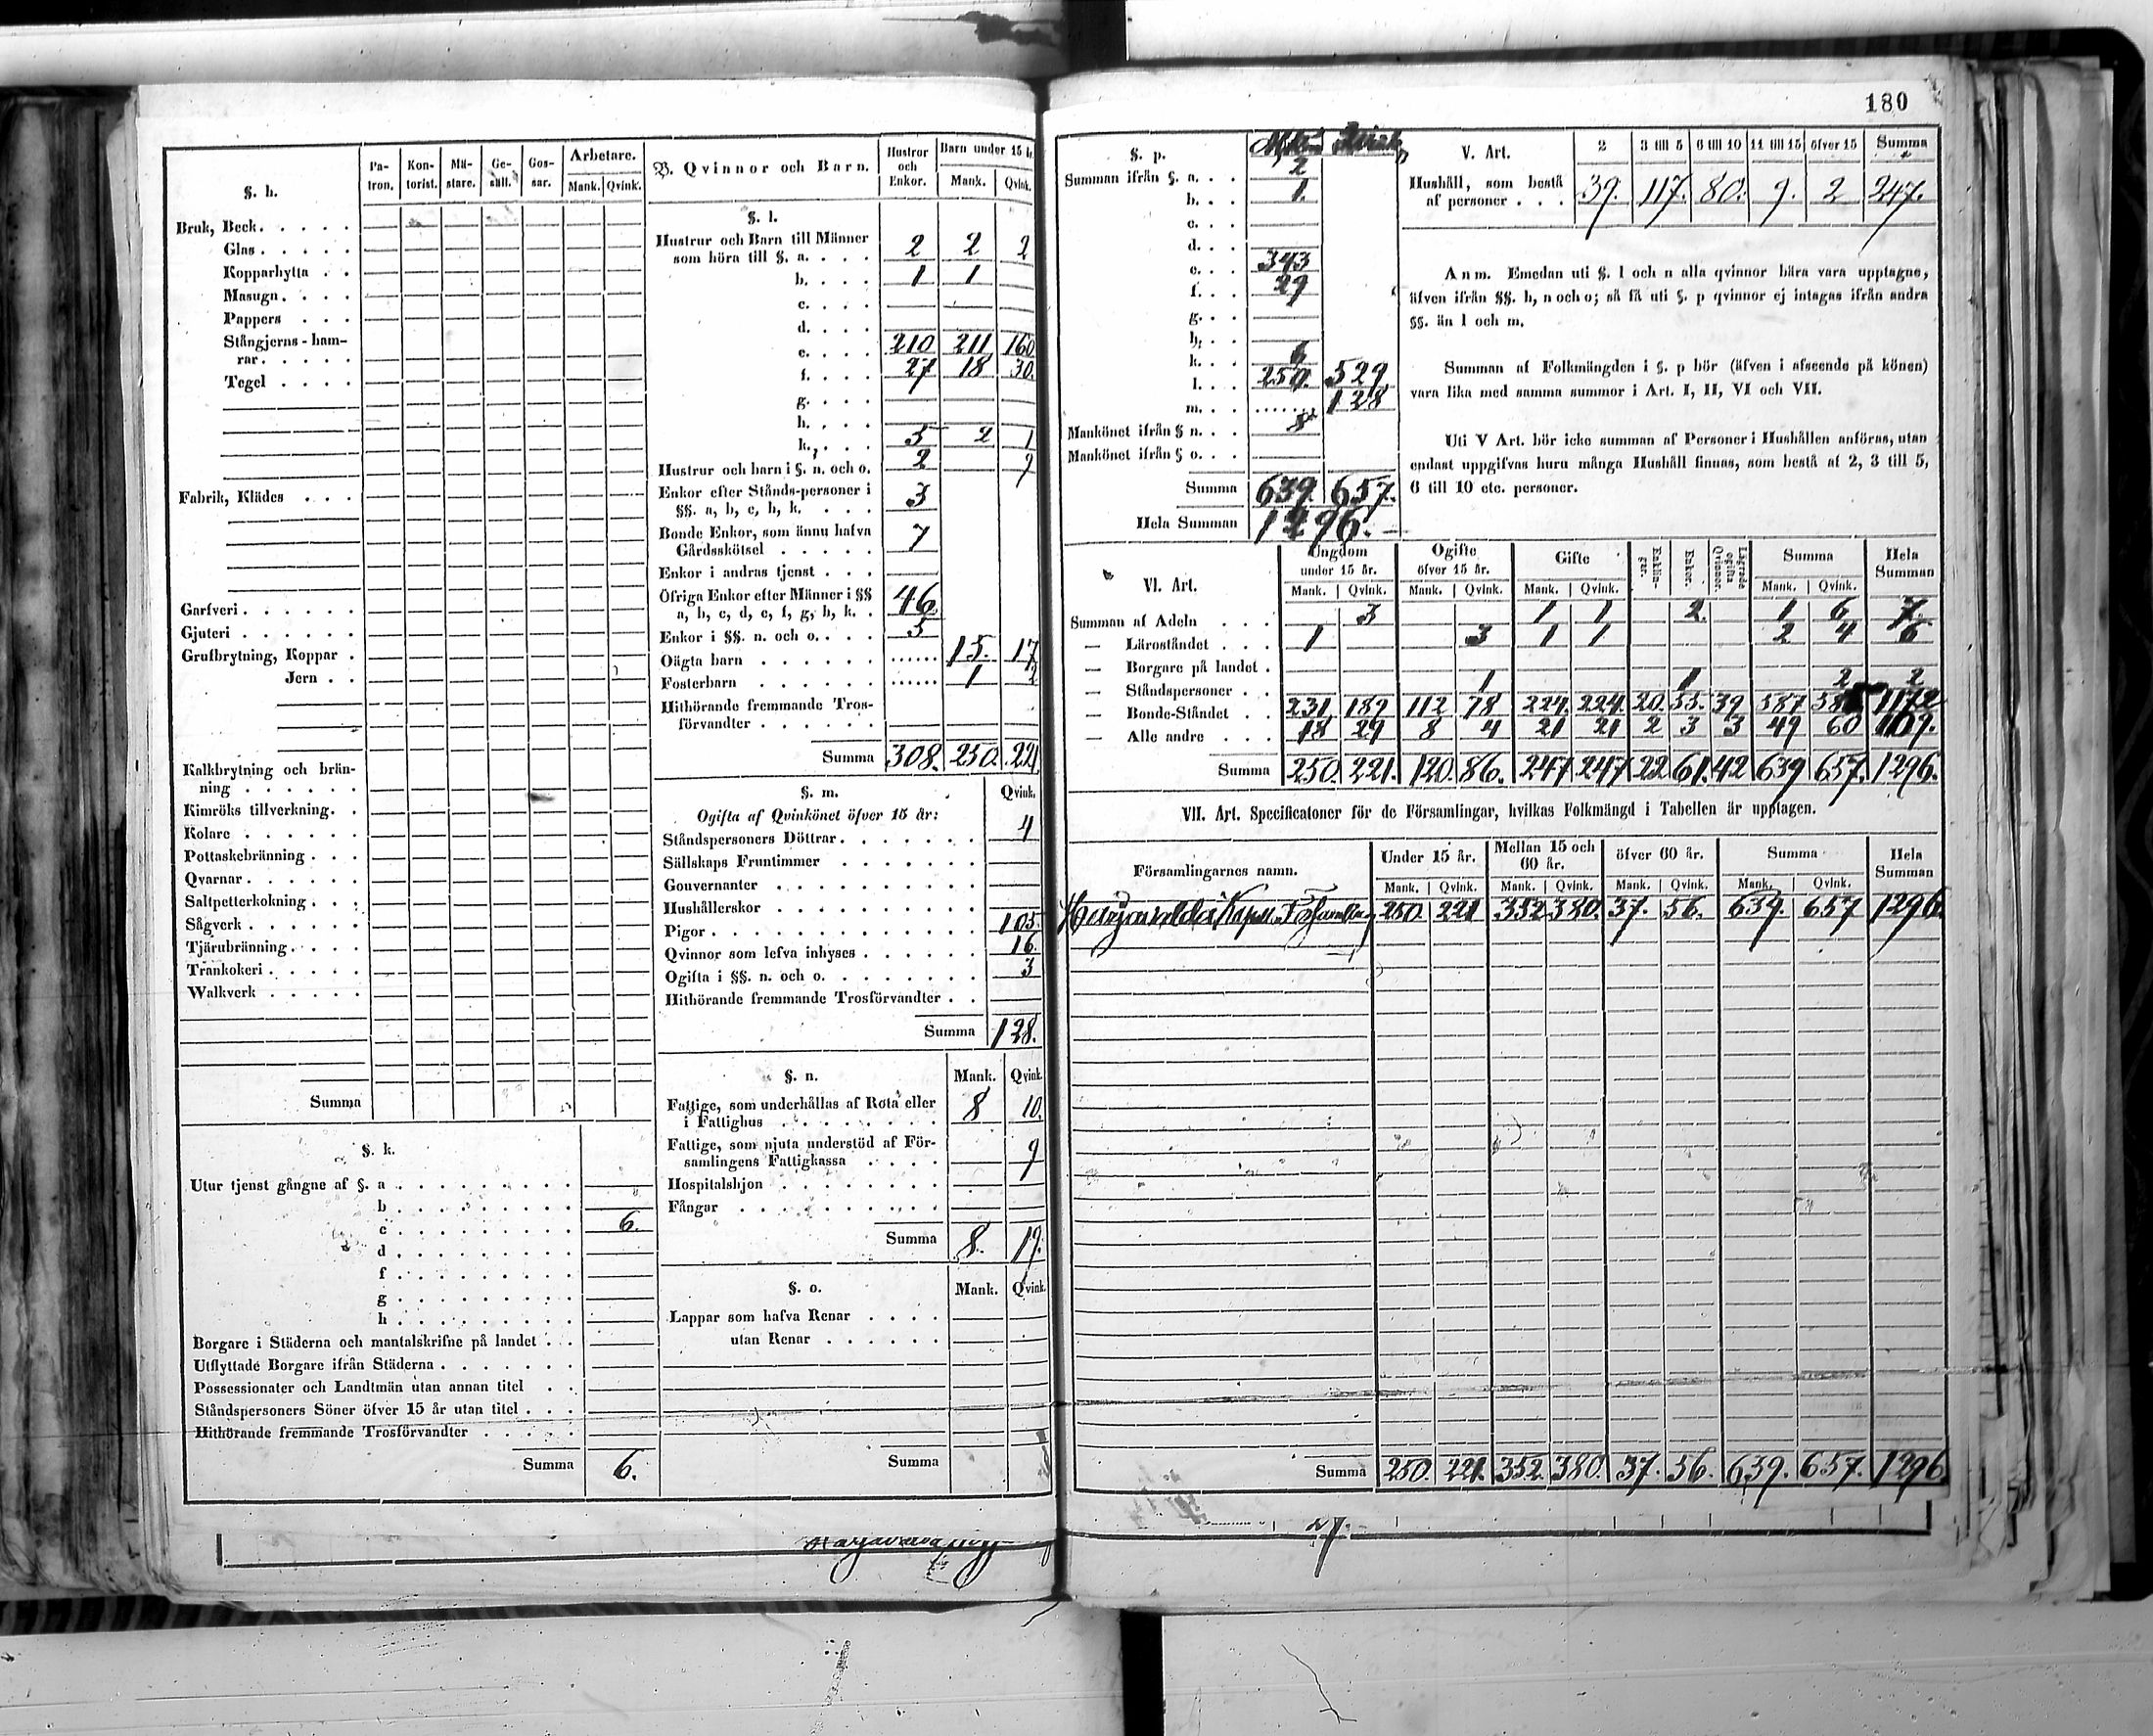 180
§. h.
Pa-tron. Kon-torist. Mä-stare. Ge-säll. Gos-sar. Arbetare.
Mank. Qvink.
Bruk, Beck
Glas
Kopparhytta
Masugn
Pappers
Stångjerns-ham-
rar
Tegel
Fabrik, Klädes
Garfveri
Gjuteri
Grufbrytning, Koppar
Jern
Kalkbrytning och brän-
ning
Kimröks tillverkning
Kolare
Pottaskebränning
Qvarnar
Saltpetterkokning
Sågverk
Tjärubränning
Trankokeri
Walkverk
Summa
§. k.
Utur tjenst gångne af §. a
b
c 6.
d
f
g
h
Borgare i Städerna och mantalskrifne på landet
Utflyttade Borgare ifrån Städerna
Possessionater och Landtmän utan annan titel
Ståndspersoners Söner öfver 15 år utan titel
Hithörande fremmande Trosförvandter
Summa 6.
B. Qvinnor och Barn. Hustror och Enkor. Barn under 15 år
Mank. Qvink.
§. l.
Hustrur och Barn till Männer
som höra till §. a. 2 2 2
b. 1 1
c.
d.
e. 210 211 160
f. 27 18 30.
g.
h.
k. 5 2 1
Hustrur och barn i §. n. och o. 2 9
Enkor efter Stånds-personer i
§§. a, b, c, h, k. 3
Bonde Enkor, som ännu hafva
Gårdsskötsel 7
Enkor i andras tjenst
Öfriga Enkor efter Männer i §§
a, b, c, d, e, f, g, h, k. 46
Enkor i §§. n. och o. 5
Oägta barn 15. 17
Fosterbarn 1 2
Hithörande fremmande Tros-
förvandter
Summa 308. 250. 221
§. m. Qvink.
Ogifta af Qvinkönet öfver 15 år:
Ståndspersoners Döttrar 4
Sällskaps Fruntimmer
Gouvernanter
Hushållerskor
Pigor 105.
Qvinnor som lefva inhyses 16.
Ogifta i §§. n. och o. 3
Hithörande fremmande Trosförvandter
Summa 128.
§. n. Mank. Qvink.
Fattige, som underhållas af Rota eller
i Fattighus 8 10.
Fattige, som njuta understöd af För-
samlingens Fattigkassa 9
Hospitalshjon
Fångar
Summa 8. 19.
§. o. Mank. Qvink.
Lappar som hafva Renar
utan Renar
Summa
§. p.
Summan ifrån §. a. 2
b. 1.
c.
d.
e. 343
f. 29
g.
h.
k. 6
l. 250. 529
m. 128
Mankönet ifrån § n. 8
Mankönet ifrån § o.
Summa 639. 657.
Hela Summan 1296.
V. Art. 2 3 till 5 6 till 10 11 till 15 öfver 15 Summa
Hushåll, som bestå
af personer 39. 117. 80. 9. 2 247.
Anm. Emedan uti §. l och n alla qvinnor böra vara upptagne,
äfven ifrån §§. h, n och o; så få uti §. p qvinnor ej intagas ifrån andra
§§. än l och m.
Summan af Folkmängden i §. p bör (äfven i afseende på könen)
vara lika med samma summor i Art. I, II, VI och VII.
Uti V Art. bör icke summan af Personer i Hushållen anföras, utan
endast uppgifvas huru många Hushåll finnas, som bestå af 2, 3 till 5,
6 till 10 etc. personer.
VI. Art. Ungdom under 15 år. Ogifte öfver 15 år. Gifte Enklin-gar. Enkor. Lägrade ogifta Qvinnor. Summa Hela Summan
Mank. Qvink. Mank. Qvink. Mank. Qvink. Mank. Qvink.
Summan af Adeln 3 1 1 2. 1 6 7.
— Läroståndet 1 3 1 1 2 4 6
— Borgare på landet
— Ståndspersoner 1 1 2 2
— Bonde-Ståndet 231 189 112 78 224. 224. 20. 55. 39 587 585 1172
— Alle andre 18 29 8 4 21 21 2 3 3 49 60 109.
Summa 250. 221. 120. 86. 247 247 22 61. 42 639 657. 1296.
VII. Art. Specificatoner för de Församlingar, hvilkas Folkmängd i Tabellen är upptagen.
Församlingarnes namn. Under 15 år. Mellan 15 och 60 år. öfver 60 år. Summa Hela Summan
Mank. Qvink. Mank. Qvink. Mank. Qvink. Mank. Qvink.
250. 221 352 380. 37. 56. 639. 657 1296.
Summa 250. 221. 352. 380. 37. 56. 639. 657. 1296
27.